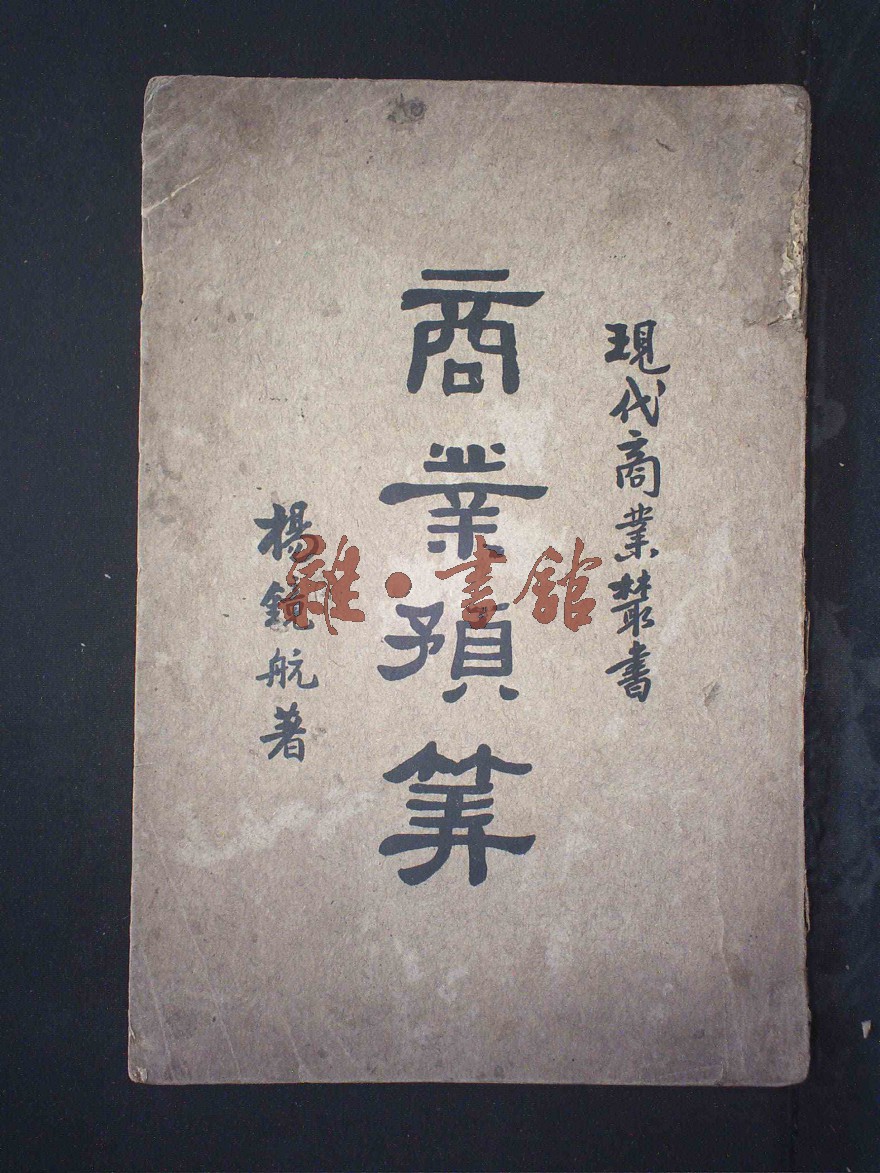 現代商業叢書
商業預算
楊鏡航著
雜·書館